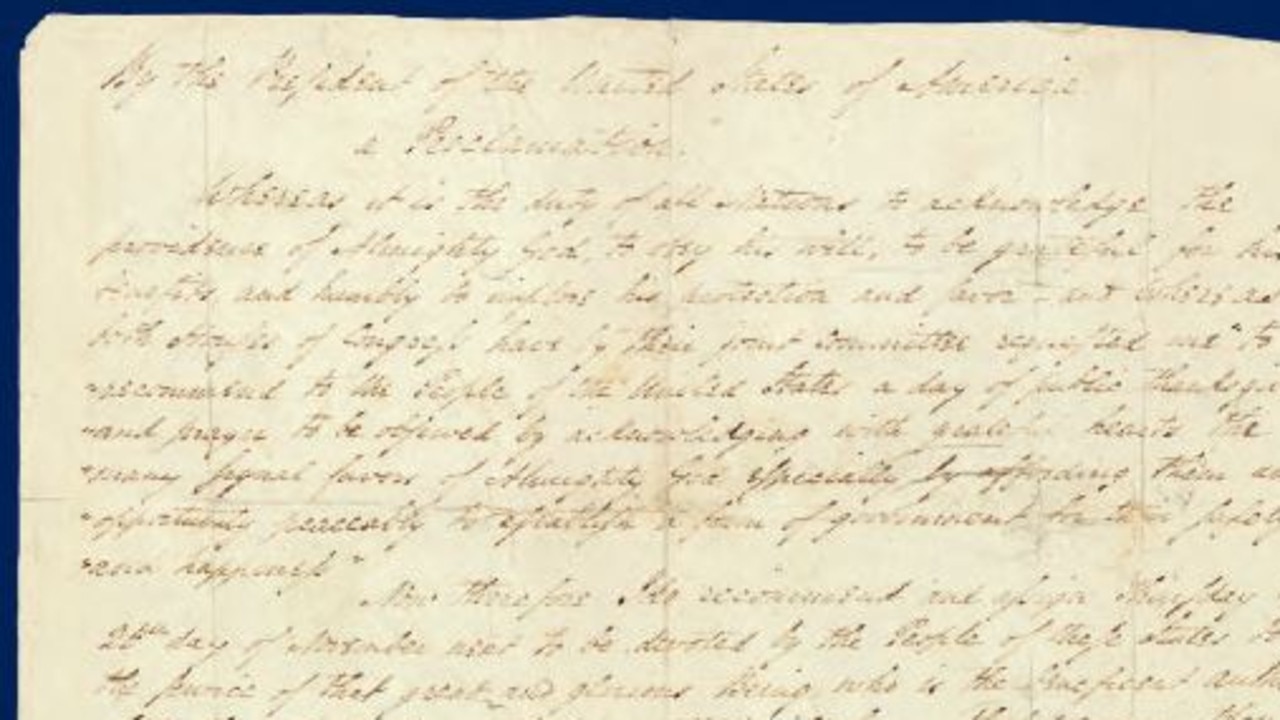 By the President of the United States of America
a Proclamation.
Whereas it is the duty of all Nations to acknowledge the
providence of Almighty God, to obey his will, to be grateful for his
benefits, and humbly to implore his protection and favor - and Whereas
both Houses of Congress have by their joint committee requested me "to
"recommend to the People of the United States a day of public thanksgi
"and prayer to be observed by acknowledging with grateful hearts the
"many signal favors of Almighty God especially by affording them an
"opportunity peaceably to establish a form of government for their safety
"and happiness"
Now therefore I do recommend and assign Thursday
26th day of November next to be devoted by the People of these States to
the service of that great and glorious Being, who is the beneficent auth